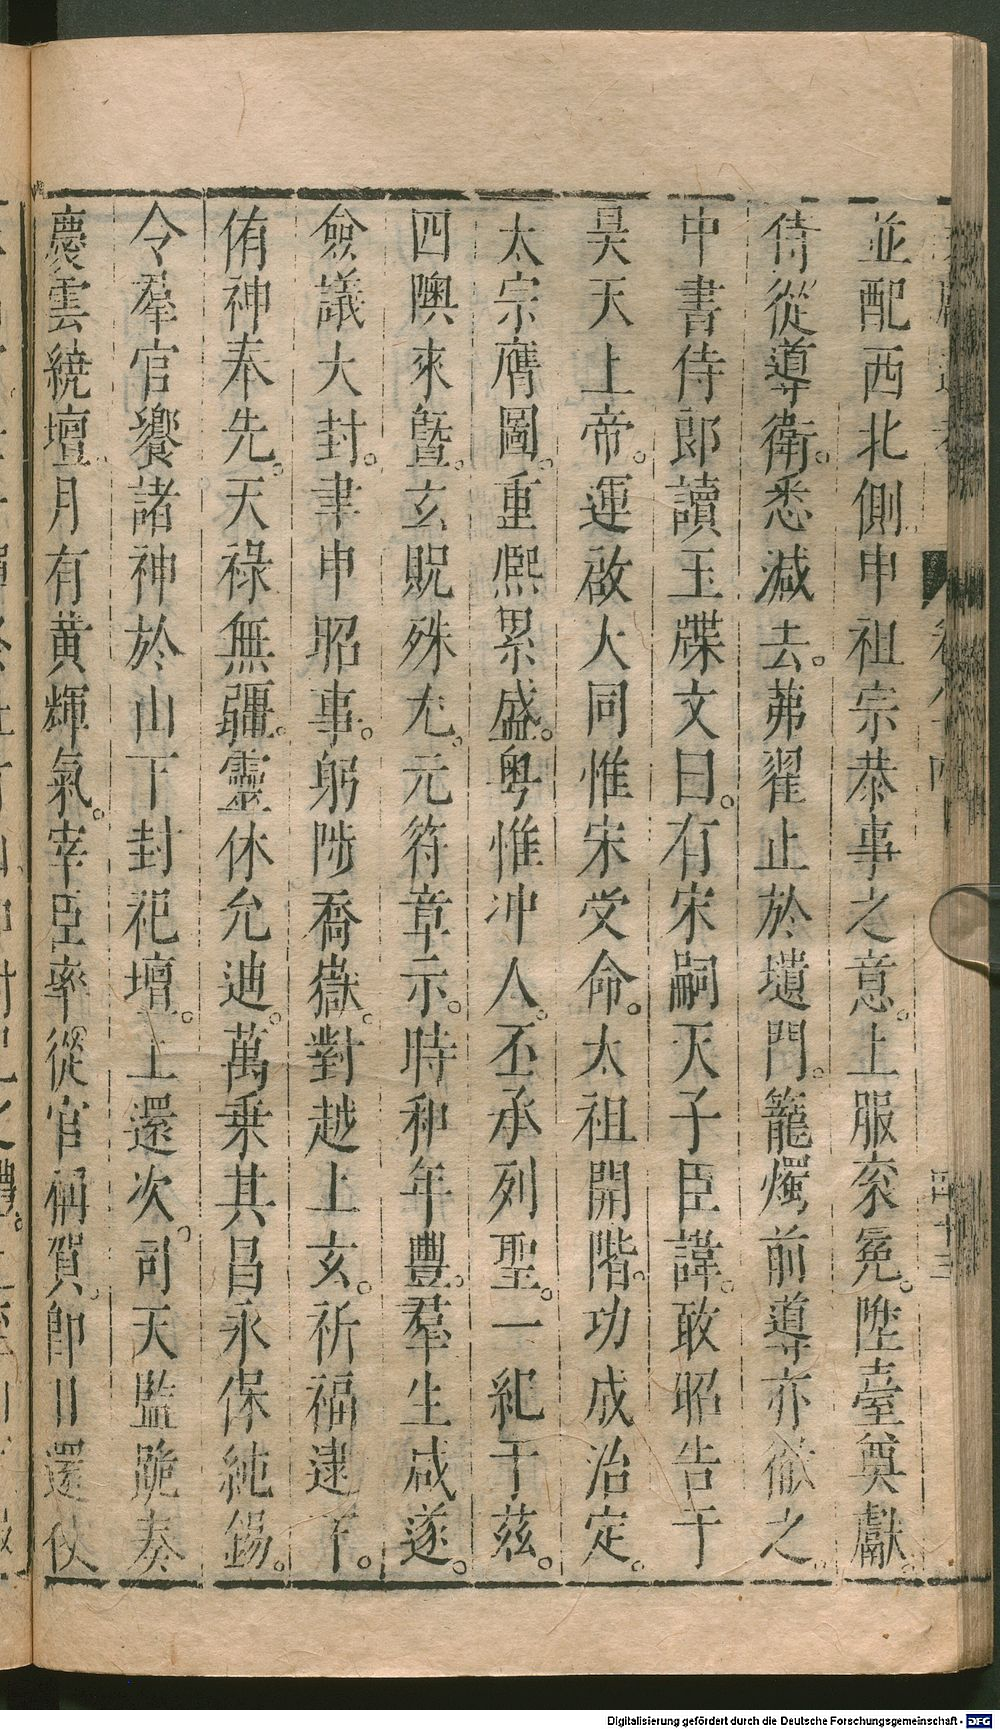 並配西北側申祖宗恭事之意。上服衮冕。陞臺奠獻。
侍從導衛。悉減去。茀翟止於壝門。籠燭前導亦徹之。
中書侍郎讀玉牒文曰。有宋嗣天子臣諱。敢昭告于
昊天上帝。運啟大同惟宋受命。太祖開階。功成治定。
太宗膺圖。重熈累盛。粤惟冲人。丕承列聖。一紀于茲。
四隩來曁。玄貺殊尤。元符章示。時和年豐。羣生咸遂。
僉議大封。聿申昭事。躬陟喬嶽。對越上玄。祈福逮下。
侑神奉先。天祿無疆。靈休允迪。萬乗其昌永保純錫。
令羣官饗諸神於山下封祀壇。上還次。司天監跪奏
慶雲繞壇。月有黄輝氣。宰臣率從官稱賀。卽日還仗
卷八十四
四十三
Digitalisierung gefördert durch die Deutsche Forschungsgemeinschaft - DFG